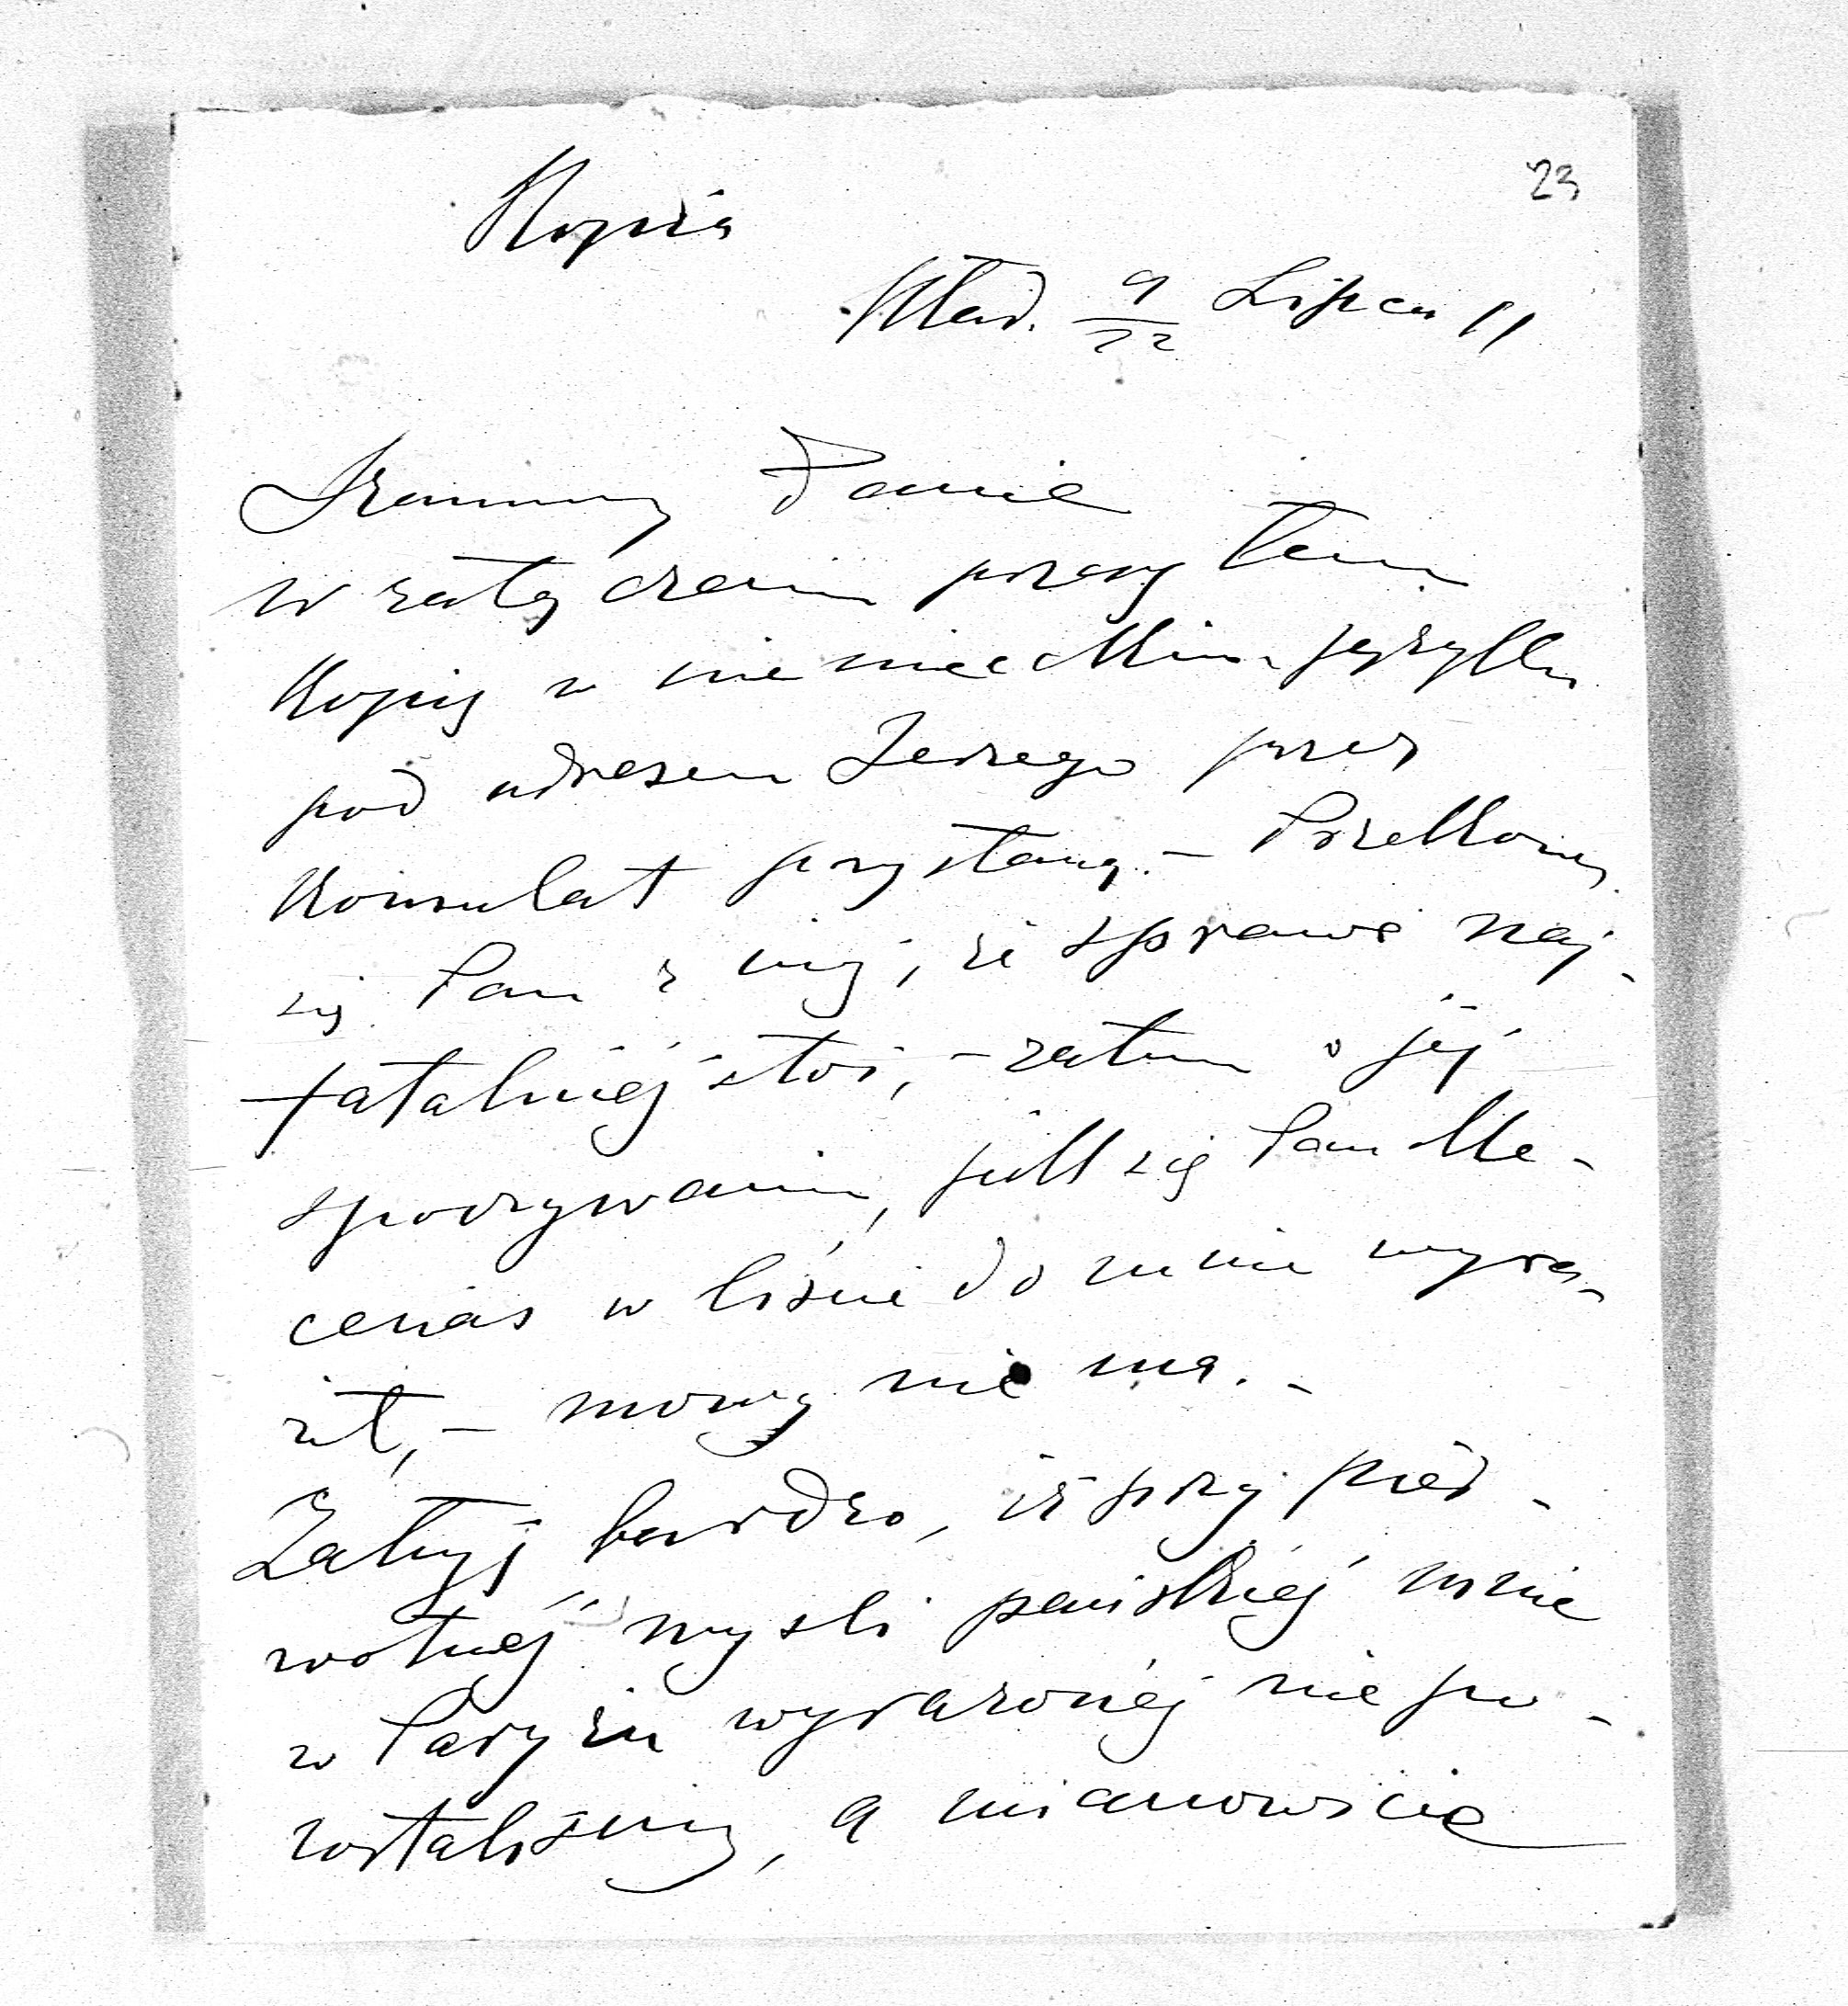 23
Kopia
Wład. 9/22 Lipca 11
Szanowny Panie
W załączeniu przesyłam
kopię w niemieckim języku
pod adresem Jerzego przez
Konsulat przysłaną. – Przekona
się Pan z niej, że sprawa naj-
fatalniej stoi, – zatem o jej
spoczywaniu, jak się Pan Me-
cenas w liście do mnie wyra-
ził, – mowy nie ma. –
Żałuję bardzo, iż przy pier-
wotnej myśli pańskiej mnie
w Paryżu wyrażonej nie po-
zostaliśmy, a mianowicie